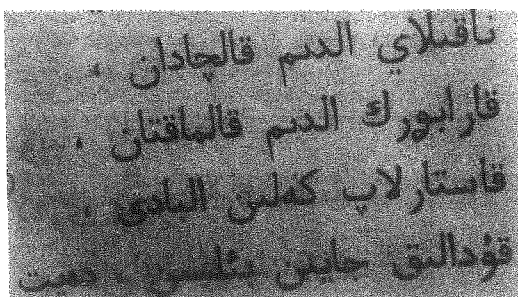 ناقىلاي الدىم قالچادان ،
قارابورك الدىم قالماقتان ،
قاستارلاپ كەلىن المادى ،
قۇدالىق جايىن